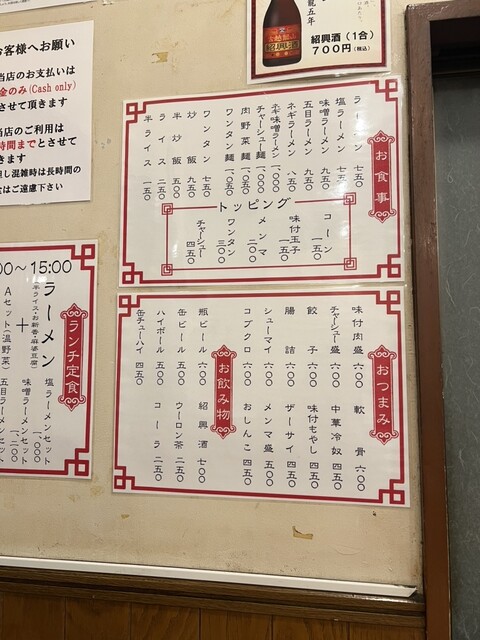 龍五年
紹興酒(1合)
700円(税込)
お客様へお願い
当店のお支払いは
金のみ(Cash only)
させて頂きます
当店のご利用は
時間までとさせて
きます
し混雑時は長時間の
はご遠慮下さい
お食事
ラーメン 七五〇
塩ラーメン 七五〇
味噌ラーメン 九五〇
五目ラーメン 九五〇
ネギラーメン 八五〇
ネギ味噌ラーメン 一、〇〇〇
チャーシュー麺 一、〇〇〇
肉野菜麺 一、〇五〇
ワンタン麺 一、〇五〇
ワンタン 七五〇
炒飯 九五〇
半炒飯 五〇〇
ライス 二五〇
半ライス 一五〇
トッピング
コーン 一五〇
味付玉子 一五〇
メンマ 二〇〇
ワンタン 三〇〇
チャーシュー 四五〇
おつまみ
味付肉盛 六〇〇
軟骨 六〇〇
チャーシュー盛 六〇〇
中華冷奴 四五〇
餃子 六〇〇
味付もやし 四五〇
腸詰 六〇〇
ザーサイ 四五〇
シューマイ 六〇〇
メンマ盛 五〇〇
コブクロ 六〇〇
おしんこ 四五〇
お飲み物
瓶ビール 七〇〇
紹興酒 七〇〇
缶ビール 五〇〇
ウーロン茶 二五〇
ハイボール 五〇〇
コーラ 二五〇
缶チューハイ 四五〇
00〜15:00
ランチ定食
ラーメン
半ライス・お新香・麻婆豆腐
+
Aセット(温野菜)
塩ラーメンセット
味噌ラーメンセット
五目ラーメンセット
一、〇〇〇
一、二〇〇